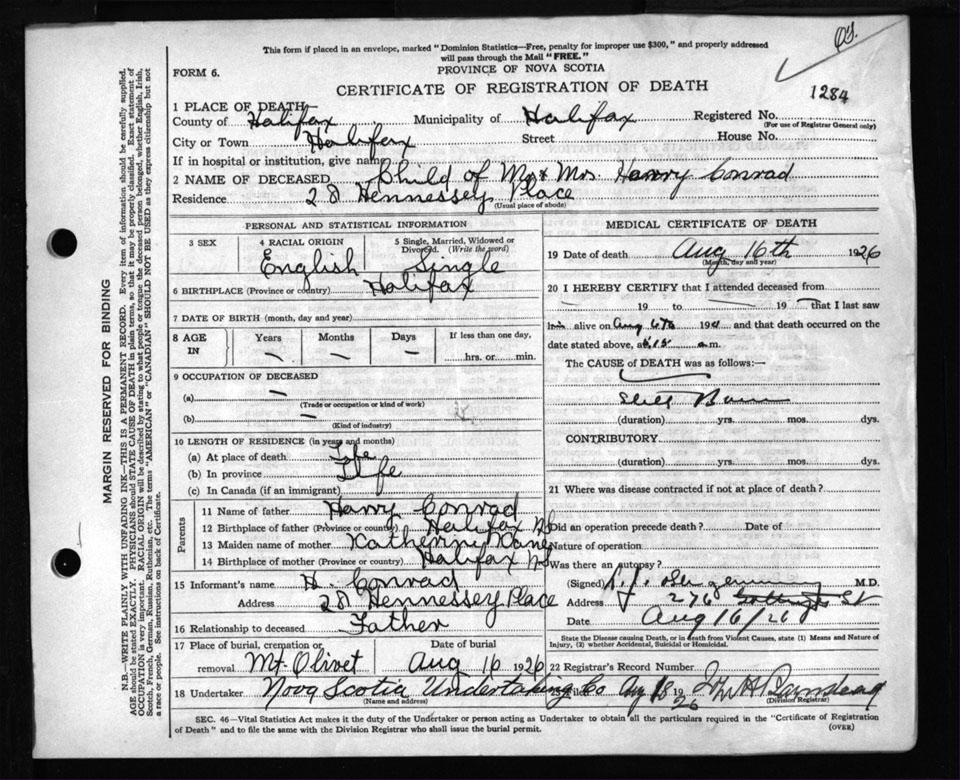 This form if placed in an envelope, marked "Dominion Statistics—Free, penalty for improper use $300," and properly addressed
will pass through the Mail "FREE."
PROVINCE OF NOVA SCOTIA
FORM 6.
CERTIFICATE OF REGISTRATION OF DEATH
1284
1 PLACE OF DEATH—
County of Halifax Municipality of Halifax Registered No.
(For use of Registrar General only)
City or Town Halifax Street House No.
If in hospital or institution, give name
2 NAME OF DECEASED Child of Mr & Mrs. Harry Conrad
Residence 28 Hennessey Place
(Usual place of abode)
PERSONAL AND STATISTICAL INFORMATION
3 SEX 4 RACIAL ORIGIN 5 Single, Married, Widowed or Divorced. (Write the word)
English Single
6 BIRTHPLACE (Province or country) Halifax
7 DATE OF BIRTH (month, day and year)
8 AGE IN Years Months Days If less than one day,
— — — hrs. or min.
9 OCCUPATION OF DECEASED
(a) —
(Trade or occupation or kind of work)
(b) —
(Kind of industry)
10 LENGTH OF RESIDENCE (in years and months)
(a) At place of death Life
(b) In province Life
(c) In Canada (if an immigrant)
Parents
11 Name of father Harry Conrad
12 Birthplace of father (Province or country) Halifax NS
13 Maiden name of mother Katherine Kane
14 Birthplace of mother (Province or country) Halifax NS
15 Informant's name H. Conrad
Address 28 Hennessey Place
16 Relationship to deceased Father
17 Place of burial, cremation or removal Mt. Olivet Date of burial Aug 16 1926
18 Undertaker Nova Scotia Undertaking Co
(Name and address)
MEDICAL CERTIFICATE OF DEATH
19 Date of death Aug 16th 1926
(Month, day and year)
20 I HEREBY CERTIFY that I attended deceased from
19 to 19 that I last saw
alive on 19 and that death occurred on
the date stated above, at m.
The CAUSE of DEATH was as follows:—
Still Born
(duration) yrs. mos. dys.
CONTRIBUTORY
(duration) yrs. mos. dys.
21 Where was disease contracted if not at place of death?
Did an operation precede death? Date of
Nature of operation
Was there an autopsy?
(Signed) M.D.
Address 276 St
Date Aug 16/26
State the Disease causing Death, or in death from Violent Causes, state (1) Means and Nature of
Injury, (2) whether Accidental, Suicidal or Homicidal.
22 Registrar's Record Number
Aug 18 1926
(Division Registrar)
SEC. 46—Vital Statistics Act makes it the duty of the Undertaker or person acting as Undertaker to obtain all the particulars required in the "Certificate of Registration
of Death" and to file the same with the Division Registrar who shall issue the burial permit.
(OVER)
MARGIN RESERVED FOR BINDING
N.B.—WRITE PLAINLY WITH UNFADING INK—THIS IS A PERMANENT RECORD. Every item of information should be carefully supplied.
AGE should be stated EXACTLY. PHYSICIANS should STATE CAUSE OF DEATH in plain terms, so that it may be properly classified. Exact statement of
OCCUPATION is very important. RACIAL ORIGIN will be described by stating to what people or tongue the deceased person belonged, whether English, Irish,
Scotch, French, German, Russian, Ruthenian, etc. The terms "AMERICAN" or "CANADIAN" SHOULD NOT BE USED as they express citizenship but not
a race or people. See instructions on back of Certificate.